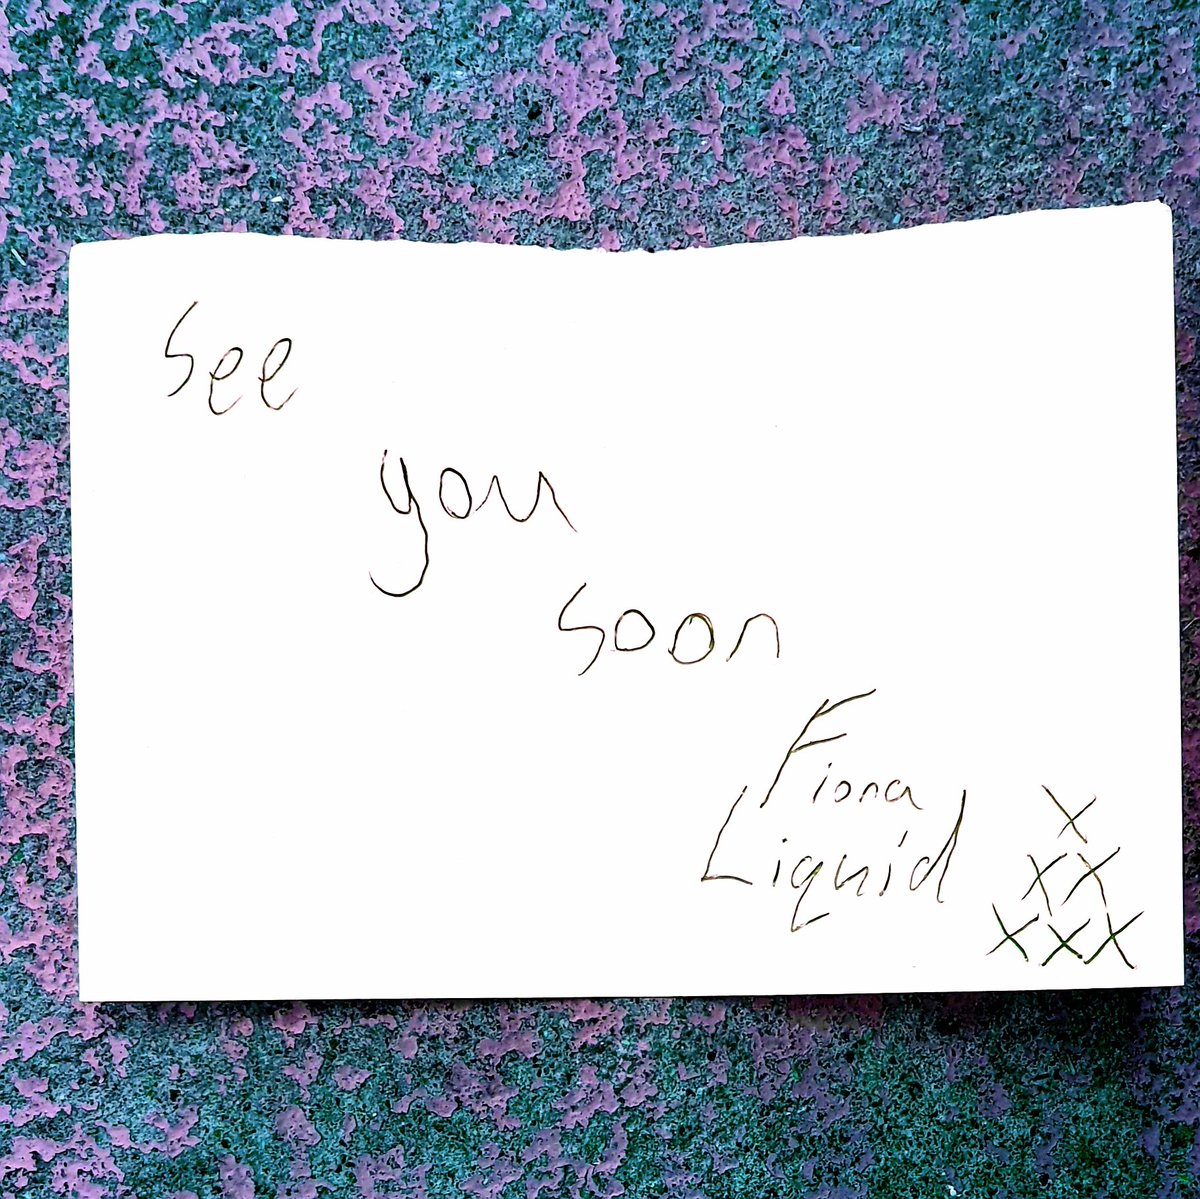 See
you
soon
Fiona
Liquid
X
XX
XXX